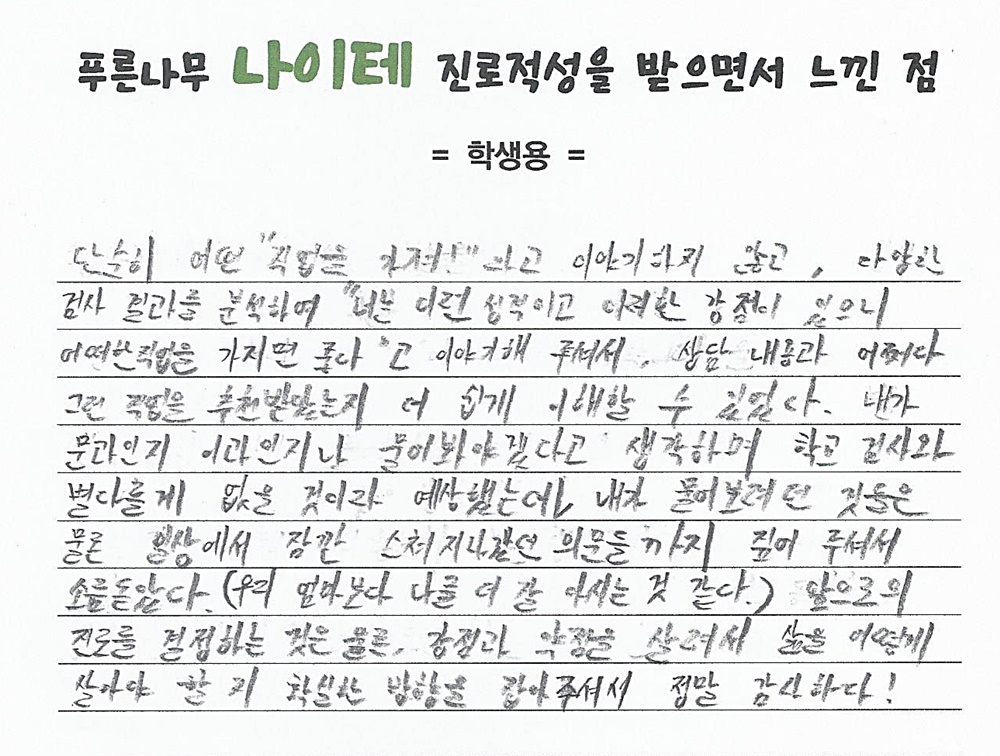 푸른나무 나이테 진로적성을 받으면서 느낀 점
= 학생용 =
단순히 어떤 "직업을 가져!" 라고 이야기하지 않고, 다양한
검사 결과를 분석하여 "너는 이런 성격이고 이러한 강점이 있으니
어떠한 직업을 가지면 좋다"고 이야기해 주셔서, 상담 내용과 어쩌다
그런 직업을 추천받았는지 더 쉽게 이해할 수 있었다. 내가
문과인지 이과인지나 물어봐야겠다고 생각하며 학교 검사와
별다를게 없을 것이라 예상했는데, 내가 물어보려던 것들은
물론 일상에서 잠깐 스쳐지나갔던 의문들까지 짚어 주셔서
소름돋았다. (우리 엄마보다 나를 더 잘 아시는 것 같다.) 앞으로의
진로를 결정하는 것은 물론, 강점과 약점을 살려서 삶을 어떻게
살아야 할 지 확실한 방향을 잡아주셔서 정말 감사하다!